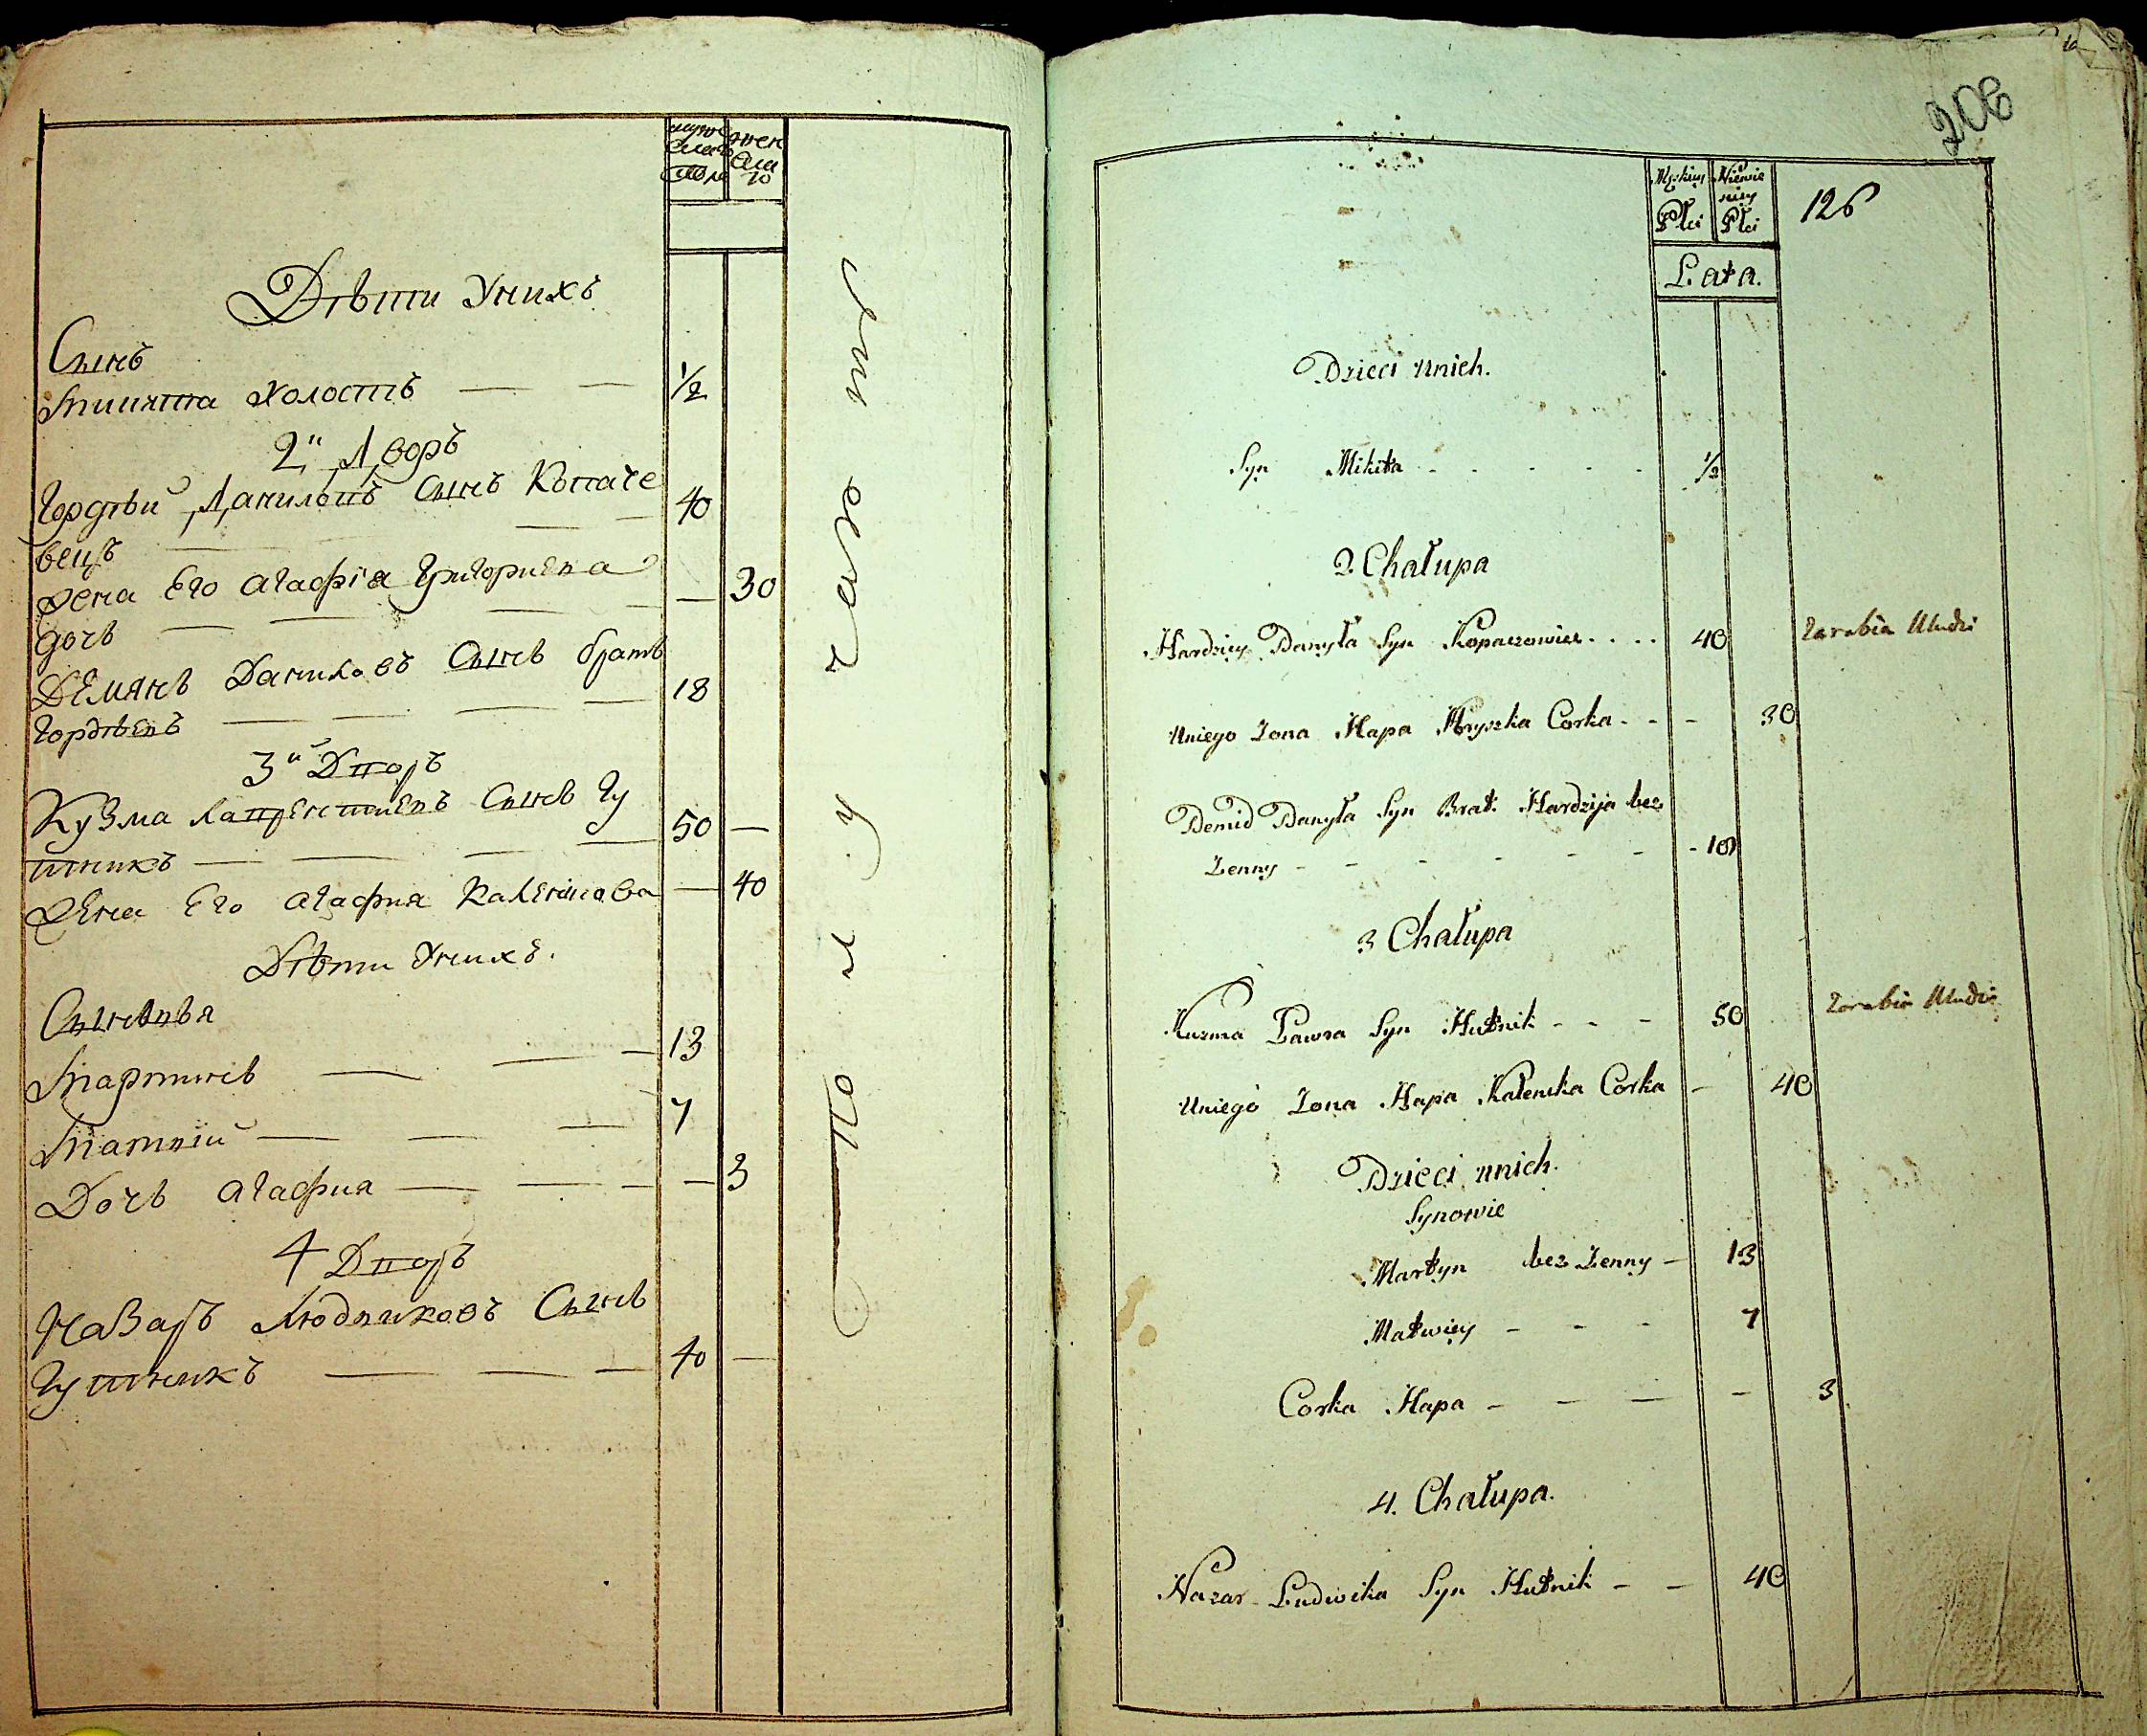 мужеска пола
женска го
Дѣти унихъ
Сынъ
Микита холостъ — — ½
2й Дворъ
Гордѣй Даниловъ Сынъ Копаче
вецъ — — — 40
Жена Его Агафія Григориева
дочь — — — 30
Демянъ Даниловъ Сынъ братъ
Гордѣевъ — — — — 18
3й Дворъ
Кузма Лаврентиевъ Сынъ Гу
тникъ — — — — 50 —
Жена Его Агафия Каленикова — 40
Дѣти Унихъ.
Сыновья
Мартинъ — — — 13
Матвiй — — — 7
Дочь Агафия — — — — 3
4 Дворъ
Назаръ Людвиковъ Сынъ
Гутникъ — — — 40 —
208
126
Męskiey Płci
Niewieściey Płci
Lata.
Dzieci unich.
Syn Mikita - - - - - ½
2. Chałupa
Hardziey Danyła Syn Kopaczowiec . . . . 40 Zarabia Ludzi
Uniego Żona Hapa Hryszka Corka - - - 30
Demid Danyła Syn Brat. Hardzija bez
Żenny - - - - - - - 18
3 Chałupa
Kuzma Ławra Syn Hutnik - - - 50 Zarabia Ludzi
Uniego Żona Hapa Kalenika Corka - 40
Dzieci unich.
Synowie
Martyn bez Żenny - 13
Matwiey - - - 7
Corka Hapa - - - - 3
4. Chałupa.
Nazar Ludwika Syn Hutnik - - 40